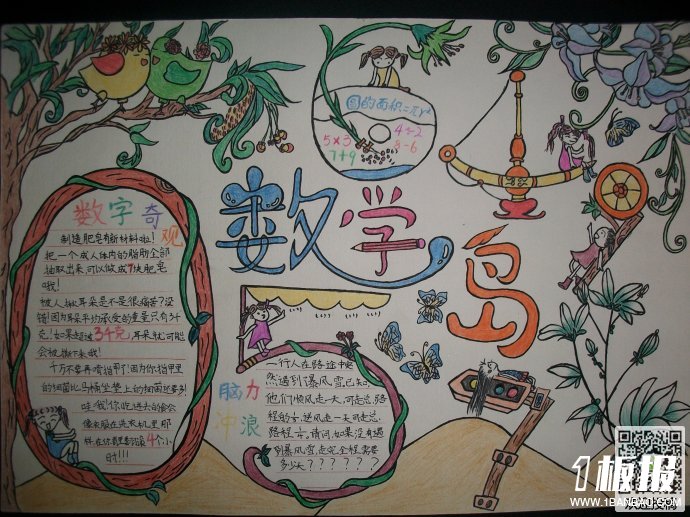 圆的面积=πr²
5×3
4÷2
7+9
8-6
数学
岛
数字奇观
制造肥皂有新材料啦!
把一个成人体内的脂肪全部
抽取出来,可以做成7块肥皂
哦!
被人揪耳朵是不是很痛苦?没
错!因为耳朵平均承受的重量只有34
克!如果超过34克,耳朵就可能
会被撕下来哦!
千万不要再啃指甲了!因为你指甲里
的细菌比马桶坐垫上的细菌还要多!
哇!我!你吃进去的食会
像衣服在洗衣机里那
样,在你胃里翻滚4个小
时!!!
脑力
冲浪
一行人在路途中突
然遇到暴风雪,已知
他们顺风走一天,可走总
路程的,逆风走一天可走总
路程的,请问,如果没有遇
到暴风雪,走完全程需要
多少天??????
1板报
WWW.1BANBAO.COM